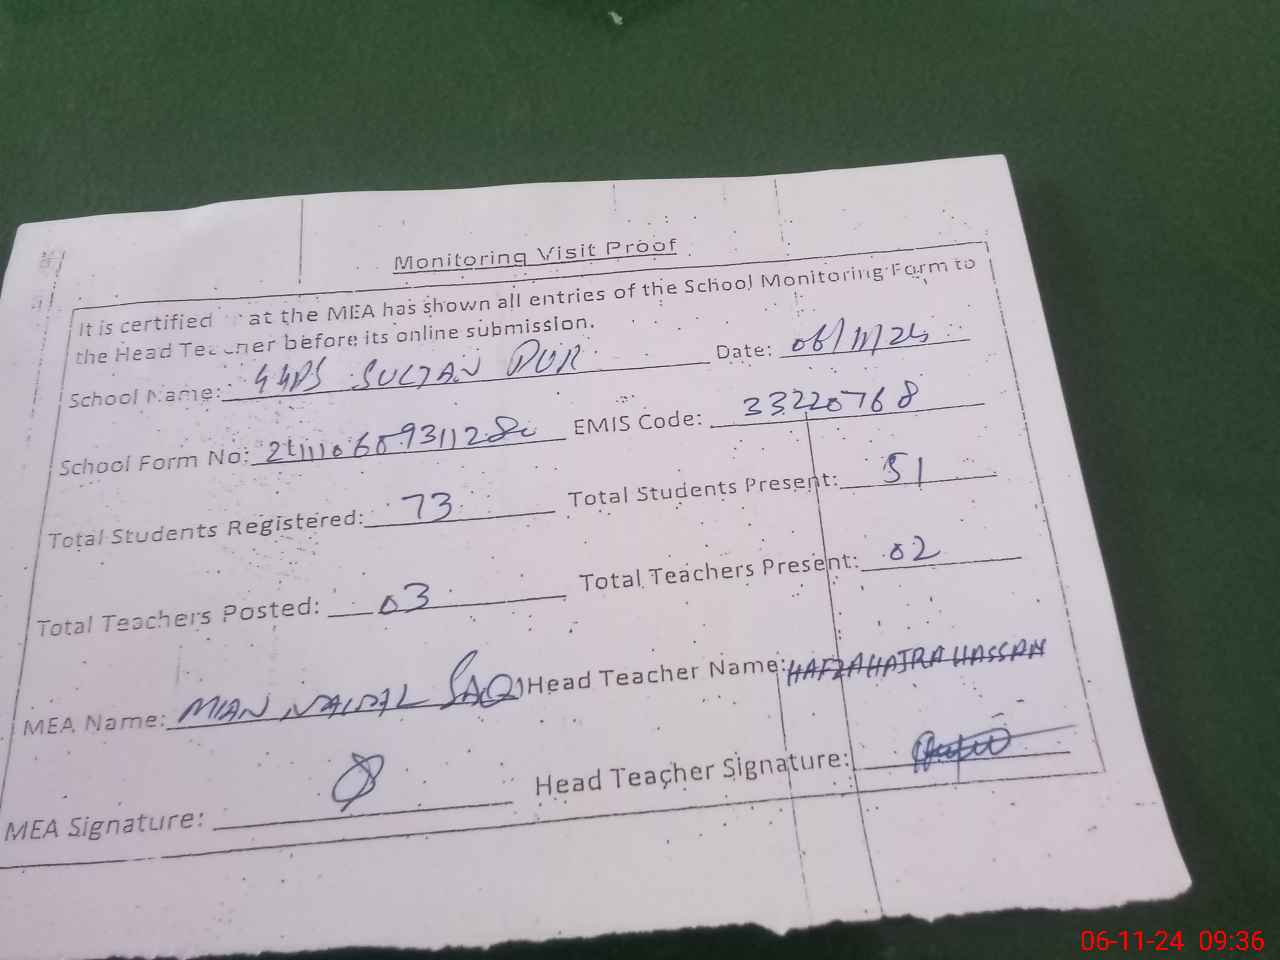 Monitoring Visit Proof
It is certified at the MEA has shown all entries of the School Monitoring Form to
the Head Teacher before its online submission.
School Name: GGPS SULTAN PUR Date: 06/11/24
School Form No: EMIS Code: 33220768
Total Students Registered: 73 Total Students Present: 51
Total Teachers Posted: 03 Total Teachers Present: 02
MEA Name: MIAN Head Teacher Name: HAFZA HAJRA HASSAN
MEA Signature: Head Teacher Signature:
06-11-24 09:36